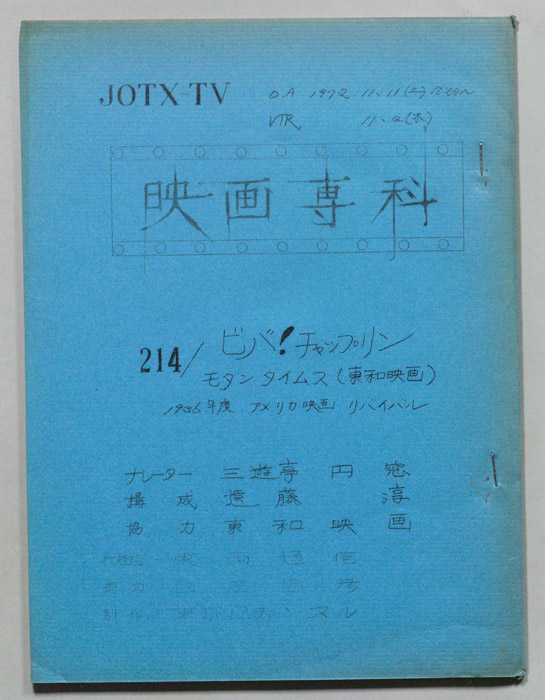 JOTX-TV
O.A 1972 11.11(土)
VTR 11.2(木)
映画専科
214/ ビバ!チャップリン
モダン タイムス(東和映画)
1936年度 アメリカ映画 リバイバル
ナレーター 三遊亭円窓
構成 遠藤淳
協力 東和映画